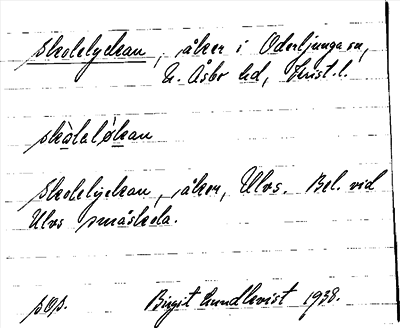 Skolelyckan, åker i Oderljunga sn,
N. Åsbo hd, Krist. l.
skòlelỳkan
Skolelyckan, åker, Ulvs. Bel. vid
Ulvs småskola.
Birgit Lundkvist 1938.